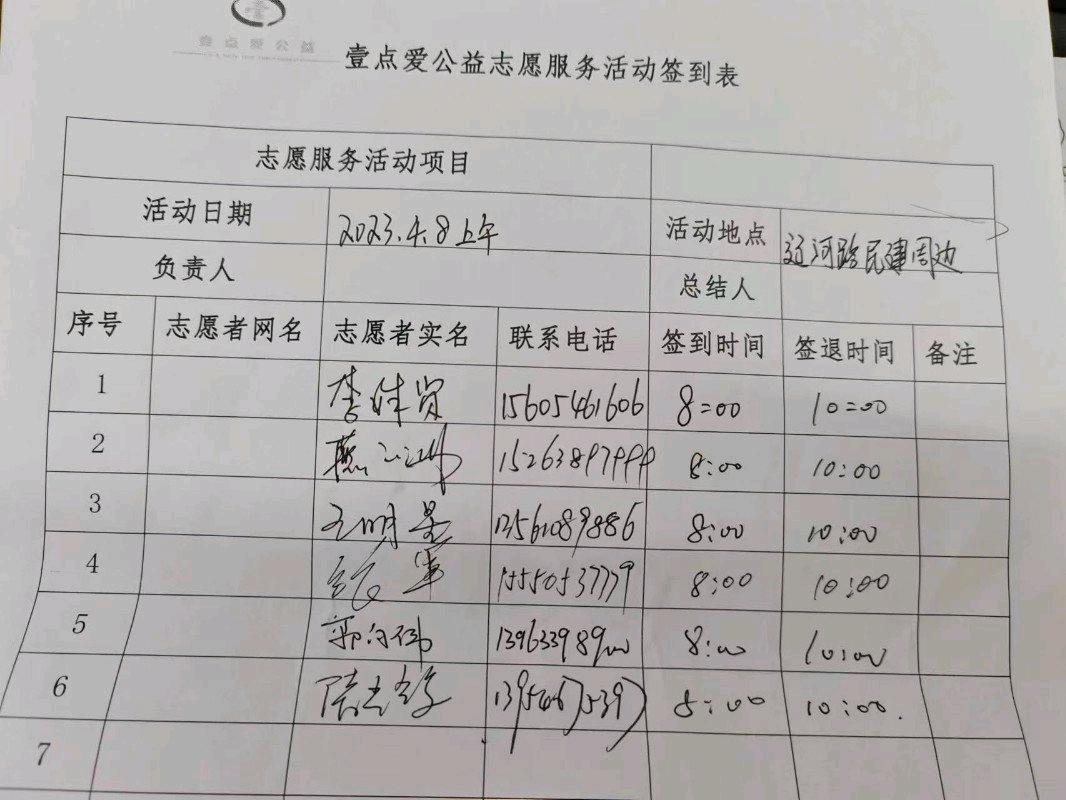 壹点爱公益
壹点爱公益志愿服务活动签到表
志愿服务活动项目
活动日期 2023.4.8上午 活动地点 辽河路民建周边
负责人 总结人
序号 志愿者网名 志愿者实名 联系电话 签到时间 签退时间 备注
1 李 15605461606 8:00 10:00
2 燕 8:00 10:00
3 王明星 13561089886 8:00 10:00
4 军 8:00 10:00
5 郭 13963398900 8:00 10:00
6 陆 13954675397 8:00 10:00.
7